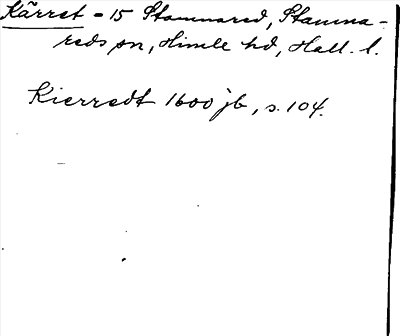 Kärret - 15 Stamnared, Stamna-
reds sn, Himle hd, Hall. l.
Kierredt 1600 jb, s. 104.